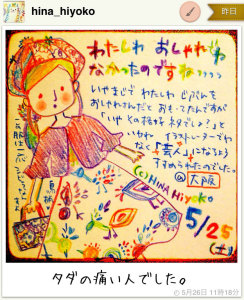 hina_hiyoko
昨日
わたしわ おしゃれでわ
なかったのですね,,,,
いやまじで わたしわ じぶんを
おしゃれさんだと おもってたんですが
「いや その格好 ネタでしょ?」と
いわれ イラストレーターでわ
なく「芸人」になるよう
すすめられたのでした。
@大阪
(C)HINA HIYOKO
5/25
(土)
タダの痛い人でした。
5月26日 11時18分